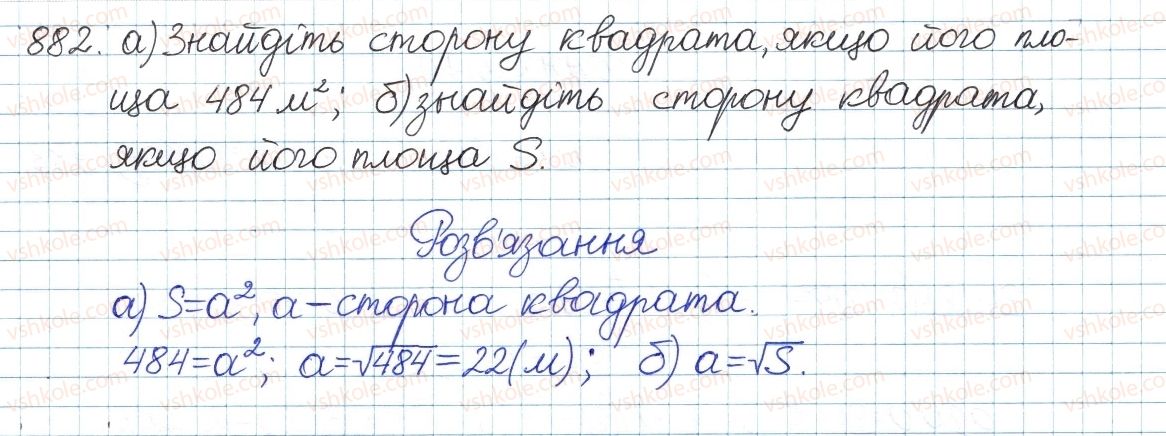 882. а) Знайдіть сторону квадрата, якщо його пло-
ща 484 м²; б) знайдіть сторону квадрата,
якщо його площа S.
Розв'язання
а) S=a², a – сторона квадрата.
484=a²; a=√484=22(м); б) a=√S.